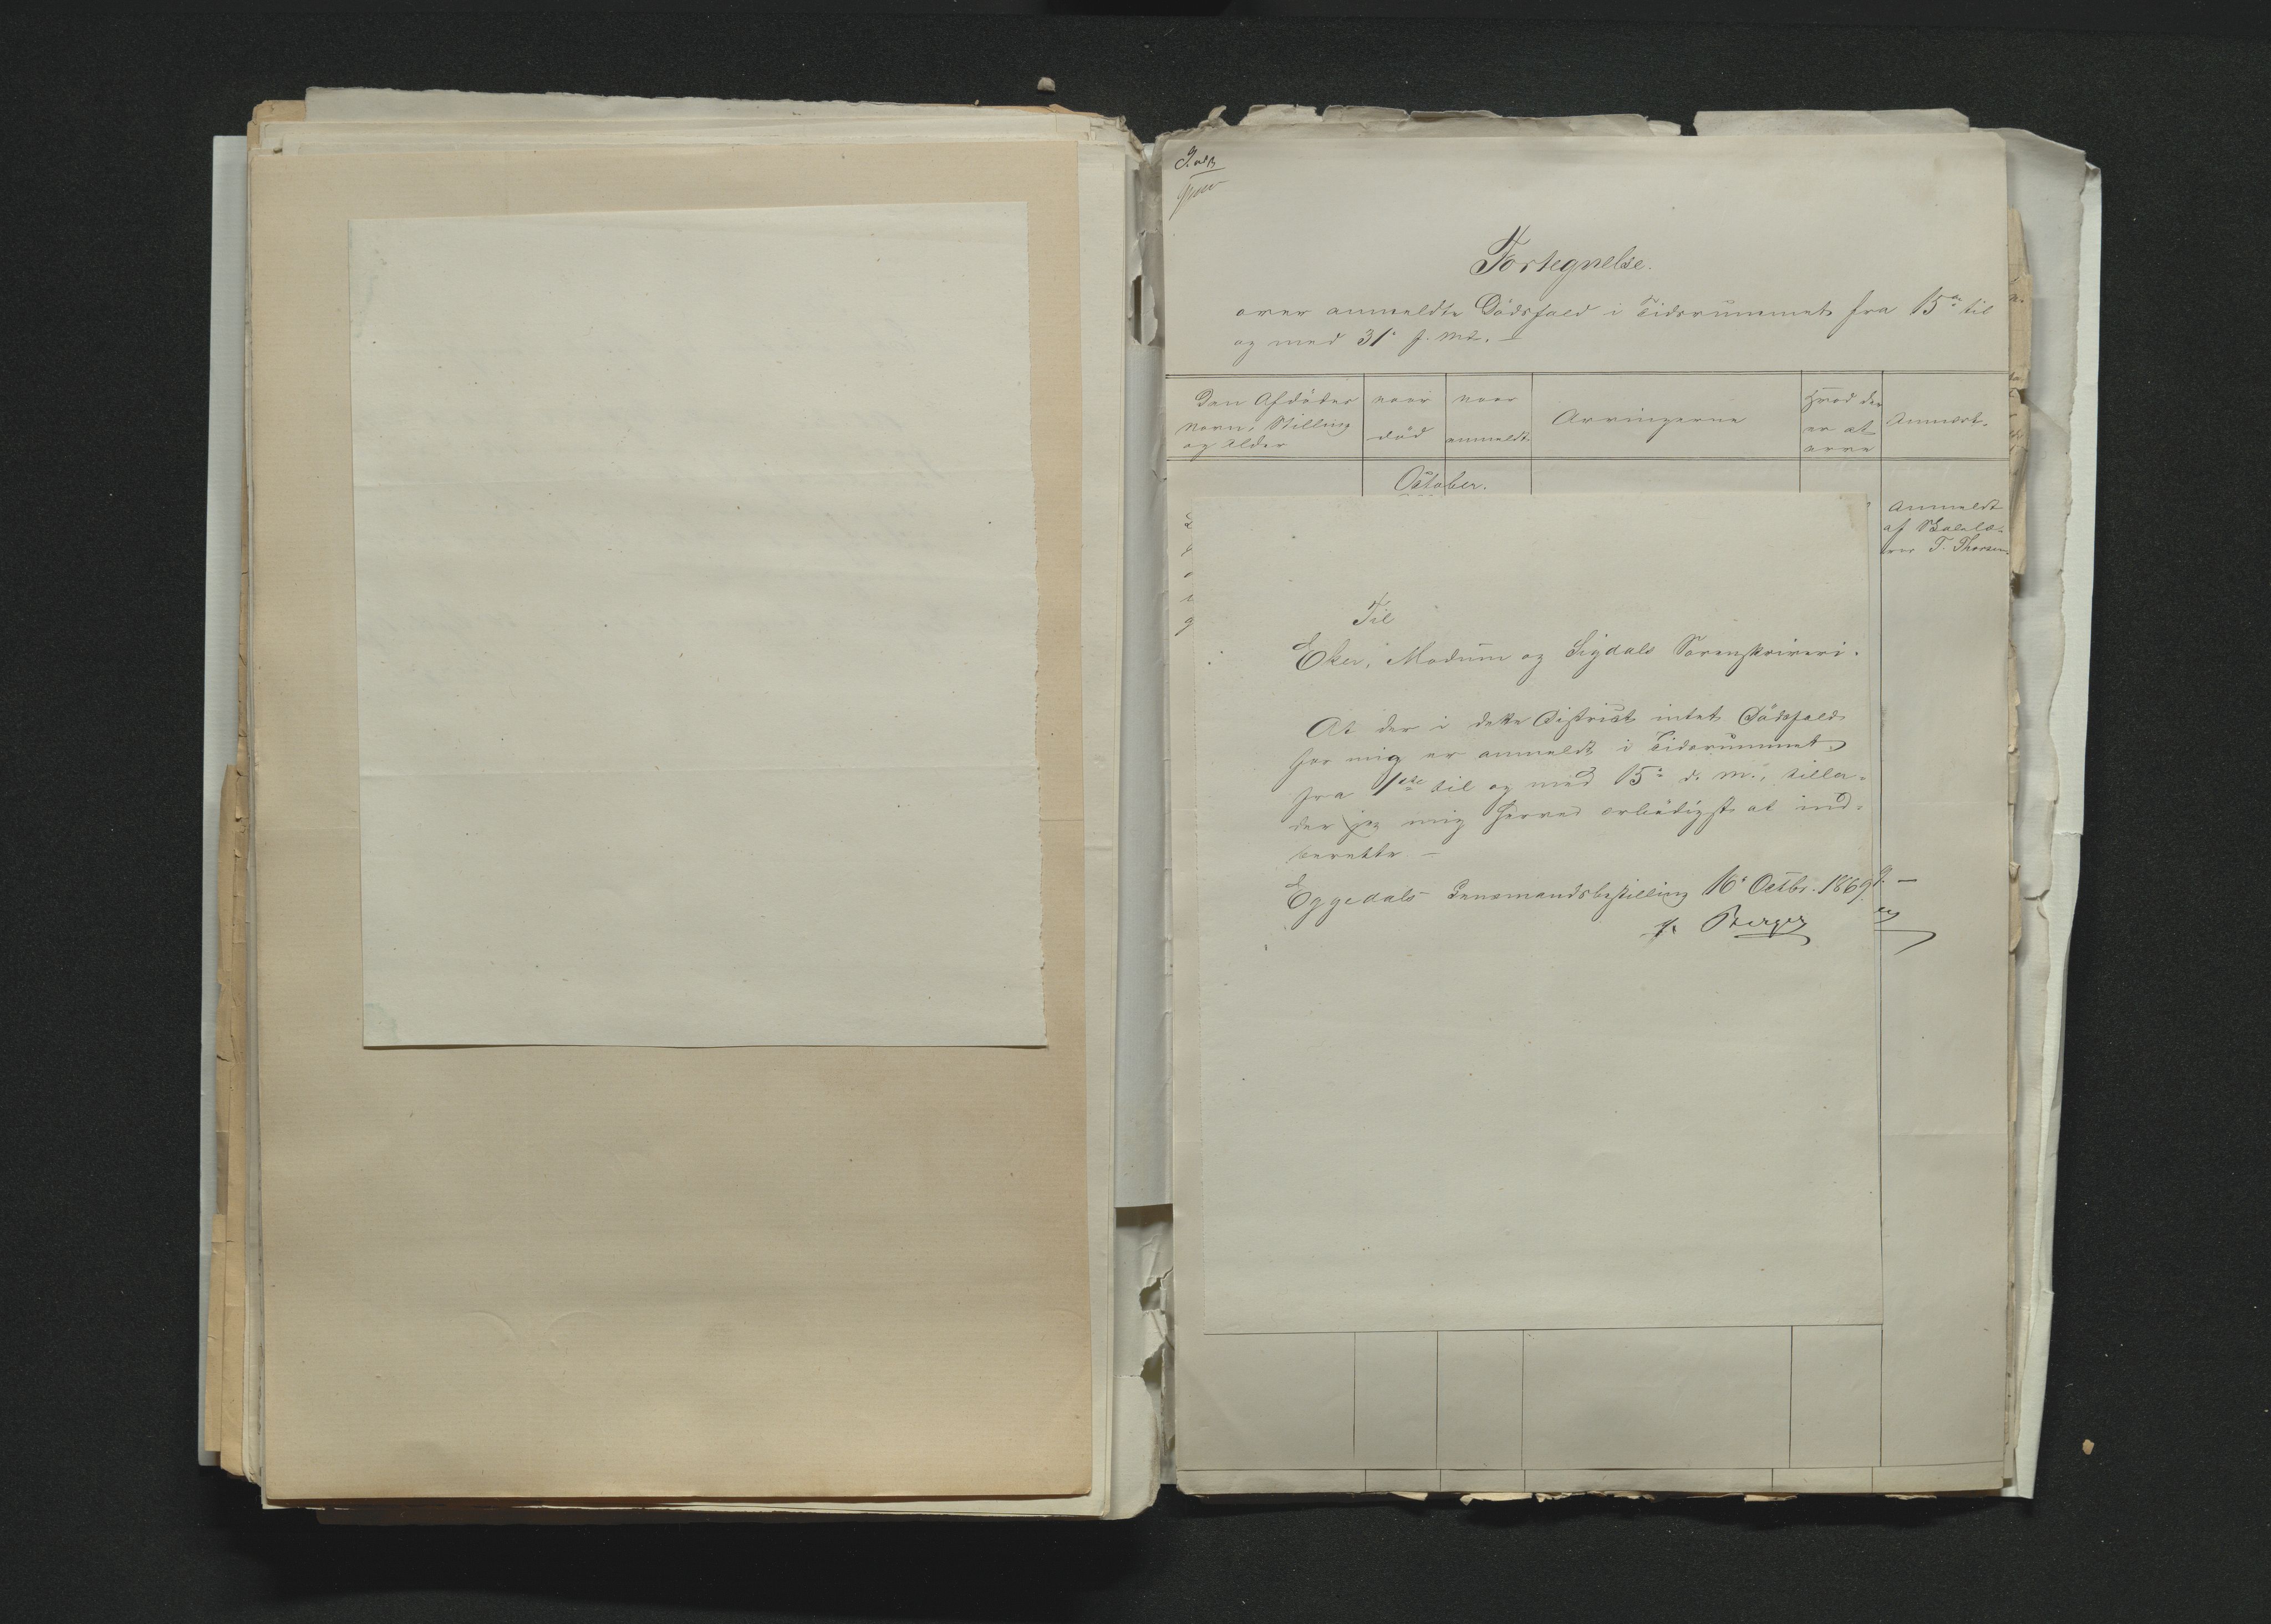 Fortegnelse.
over anmeldte Dödsfald i Tidsrummet fra 15de til
og med 31' f. Md. —
Den Afdödes
Navn, Stilling
og Alder
naar
död
naar
anmeldt
Arvingerne
Hvad der
er at
arve
Anmærk.
October.
Anmeldt
af Skolelæ-
rer T. Thorsen
Til
Eker, Modum og Sigdals Sorenskriveri.
At der i dette District intet Dödsfald
for mig er anmeldt i Tidsrummet
fra 1ste til og med 15' d. M., tilla-
der jeg mig herved erbödigst at ind-
berette —
Eggedals Lensmandsbestilling 16' Octbr. 1869.
Berger